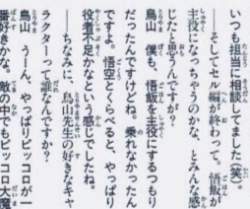 いつも担当に相談してました(笑)。
──そしてセル編が終わって。悟飯が
主役になっちゃうのかな、とみんな感
じたと思うんですが?
鳥山 僕も、悟飯を主役にするつもり
だったんですけどね。乗れなかったん
ですよ。悟空とくらべると、やっぱり
役者不足かなという感じでしたね。
──ちなみに、鳥山先生の好きなキャ
ラクターって誰なんですか?
鳥山 うーん、やっぱりピッコロが一
番好きかな。敵の中でもピッコロ大魔